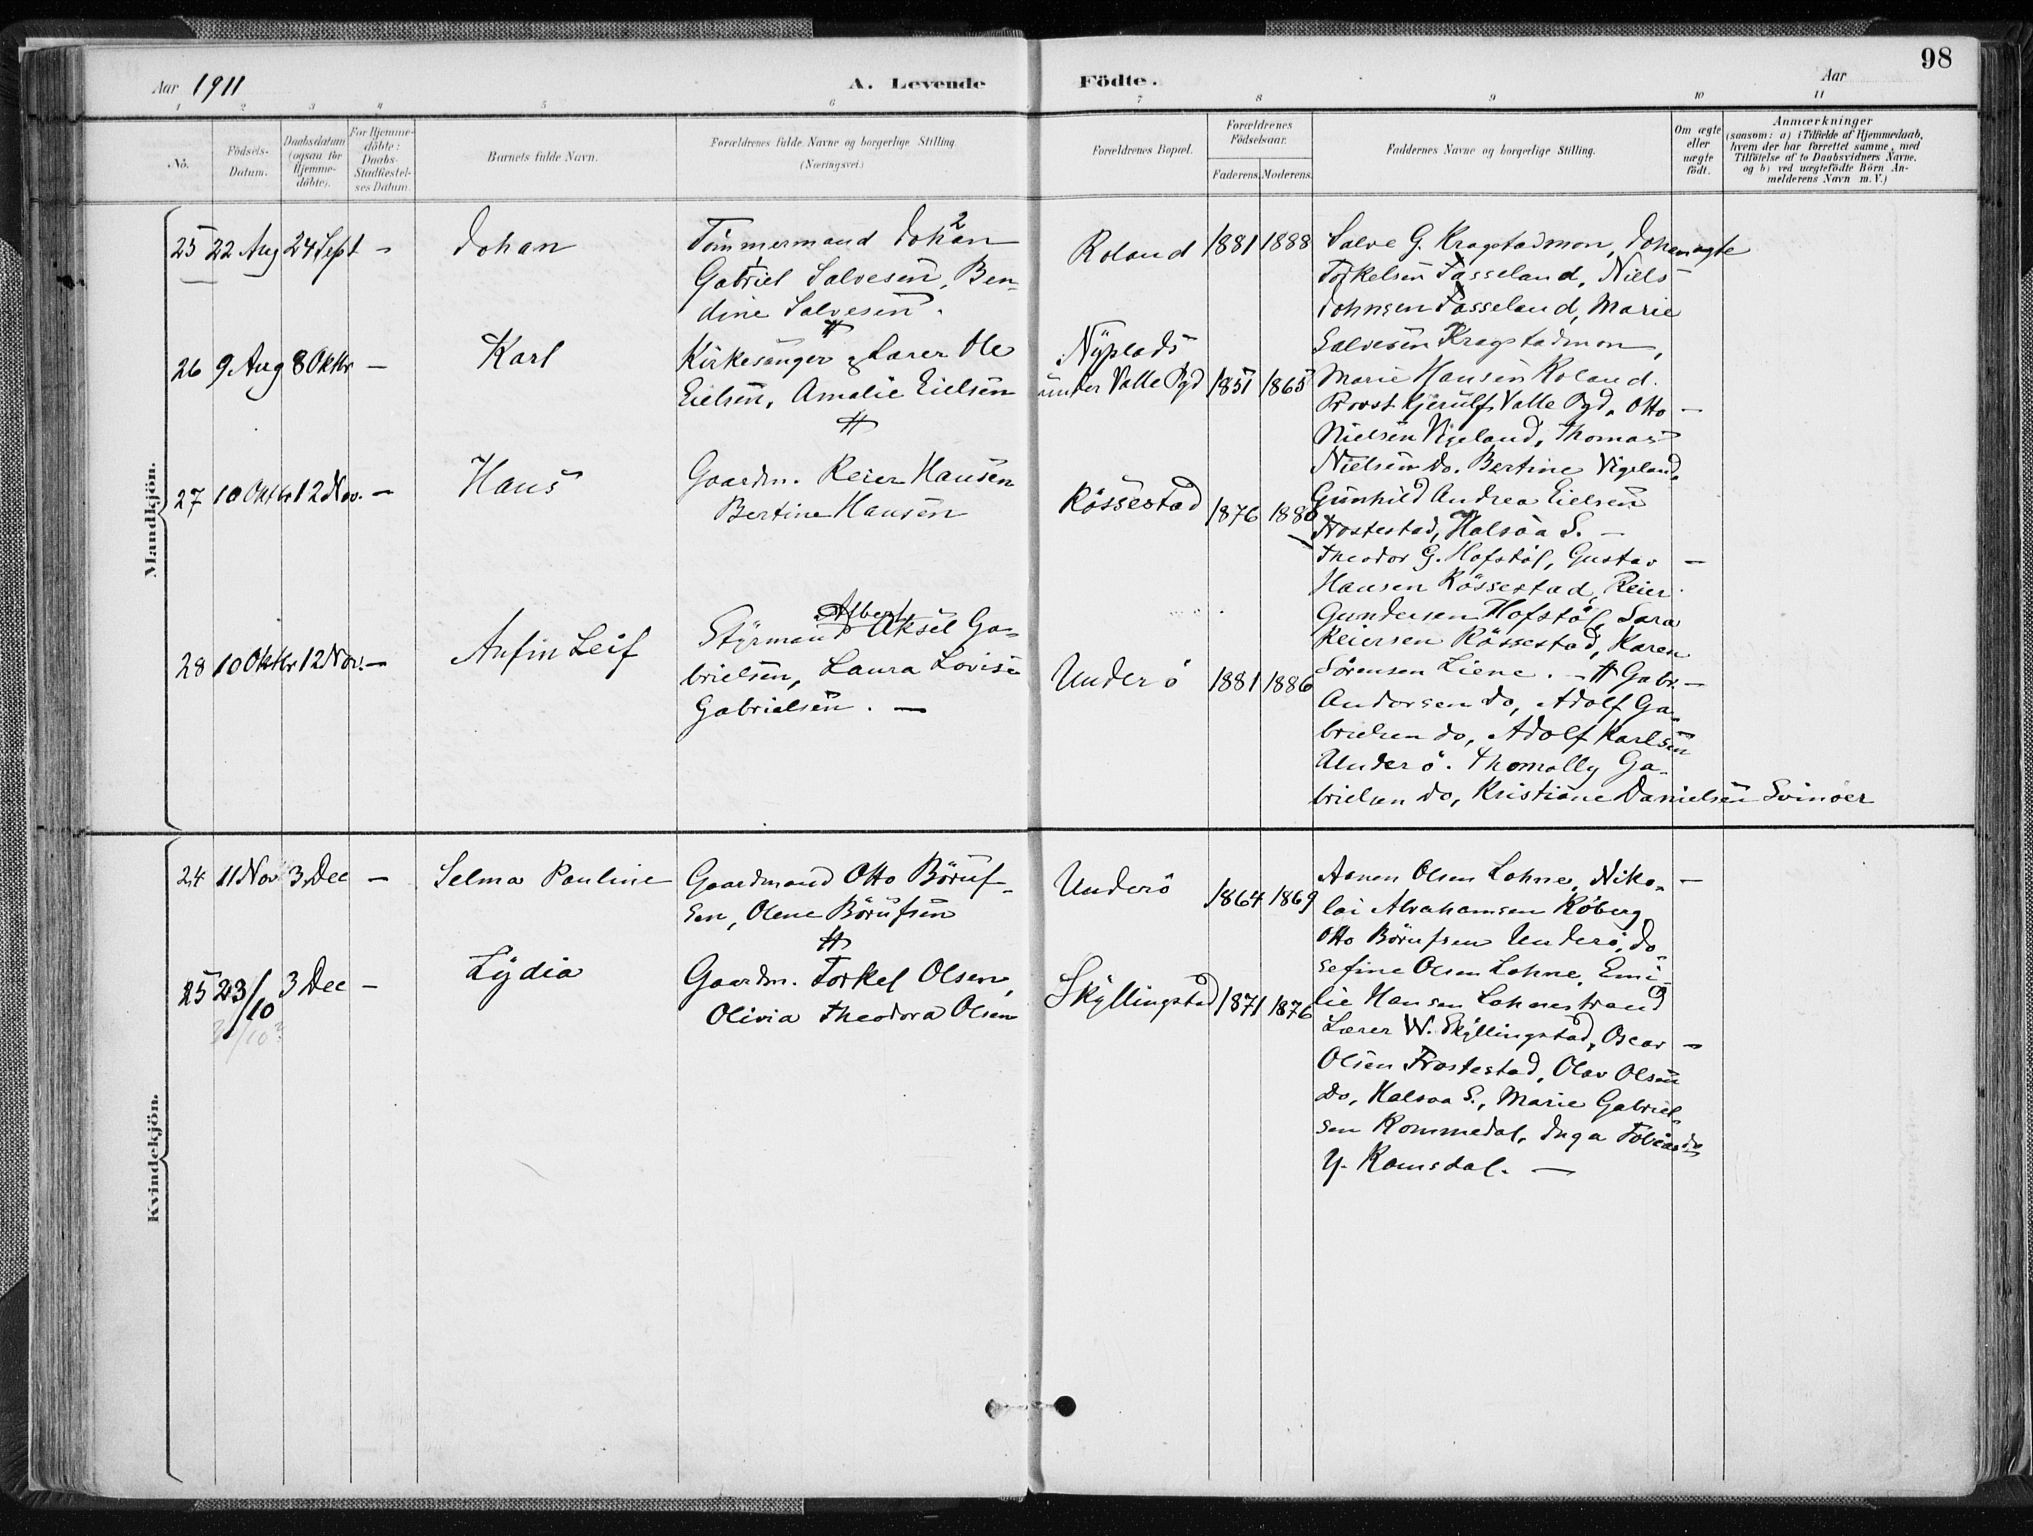 98
Aar 1911
A. Levende Födte.
Aar
1 2 3 4 5 6 7 8 9 10 11
No.
Födsels-Datum.
Daabsdatum (ogsaa for Hjemme-döbte).
For Hjemme-döbte: Daabs-Stadfæstel-ses Datum.
Barnets fulde Navn.
Forældrenes fulde Navne og borgerlige Stilling (Næringsvei)
Forældrenes Bopæl.
Forældrenes Födselsaar.
Faderens. Moderens.
Faddernes Navne og borgerlige Stilling.
Om ægte eller uægte födt.
Anmærkninger
(saasom: a) i Tilfælde af Hjemmedaab,
hvem der har forrettet samme, med
Tilföielse af to Daabsvidners Navne,
og b) ved uægtefödte Börn An-
melderens Navn m. V.)
Mandkjön.
25 22 Aug 24 Sept - Johan
Tömmermand Johan 2
Gabriel Salvesen, Ben-
dine Salvesen.
Roland 1881 1888
Salve G. Kragstadmon, Johan ægte
Torkelsen Fasseland, Niels
Johnsen Fasseland, Marie
Salvesen Kragstadmon,
Marie Hansen Roland.
26 9 Aug 8 Oktbr - Karl
Kirkesanger & Lærer Ole
Eielsen, Amalie Eielsen
Nyplads
under Valle Pgd 1851 1865
Provst Kjerulf Valle Pgd, Otto -
Nielsen Vigeland, Thomas
Nielsen do. Bertine Vigeland,
Gunhild Andrea Eielsen
Frostestad, Halsaa S. -
27 10 Oktbr 12 Nov. - Hans
Gaardm. Reier Hansen
Bertine Hansen
Rössestad 1876 1880
Theodor G. Hofstöl, Gustav -
Hansen Rössestad, Reier
Gundersen Hofstöl, Sara
Reiersen Rössestad, Karen
Sörensen Liene. -
28 10 Oktbr 12 Nov. - Anfin Leif
Albert
Styrmand Aksel Ga-
brielsen, Laura Lovise
Gabrielsen. -
Underö 1881 1886
Gabr. -
Andorsen do, Adolf Ga-
brielsen do, Adolf Karlsen
Underö. Thomally Ga-
brielsen do, Kristiane Danielsen Svinöer
Kvindekjön.
24 11 Nov 3 Dec - Selma Pauline
Gaardmand Otto Börüf-
sen, Olene Börufsen
Underö 1864 1869
Aanen Olsen Lohne, Niko- -
lai Abrahamsen Köberg,
Otto Börufsen Underö, Jo-
sefine Olsen Lohne, Emi-
lie Hansen Lohnestrand
25 23/10 3 Dec - Lydia
3/10?
Gaardm. Torkel Olsen,
Olivia Theodora Olsen
Skyllingstad 1871 1876
Lærer W. Skyllingstad, Oscar -
Olsen Frostestad, Olav Olsen
do, Halsaa S., Marie Gabriel-
sen Rommedal, Inga Tobias da
y. Ramsdal. -